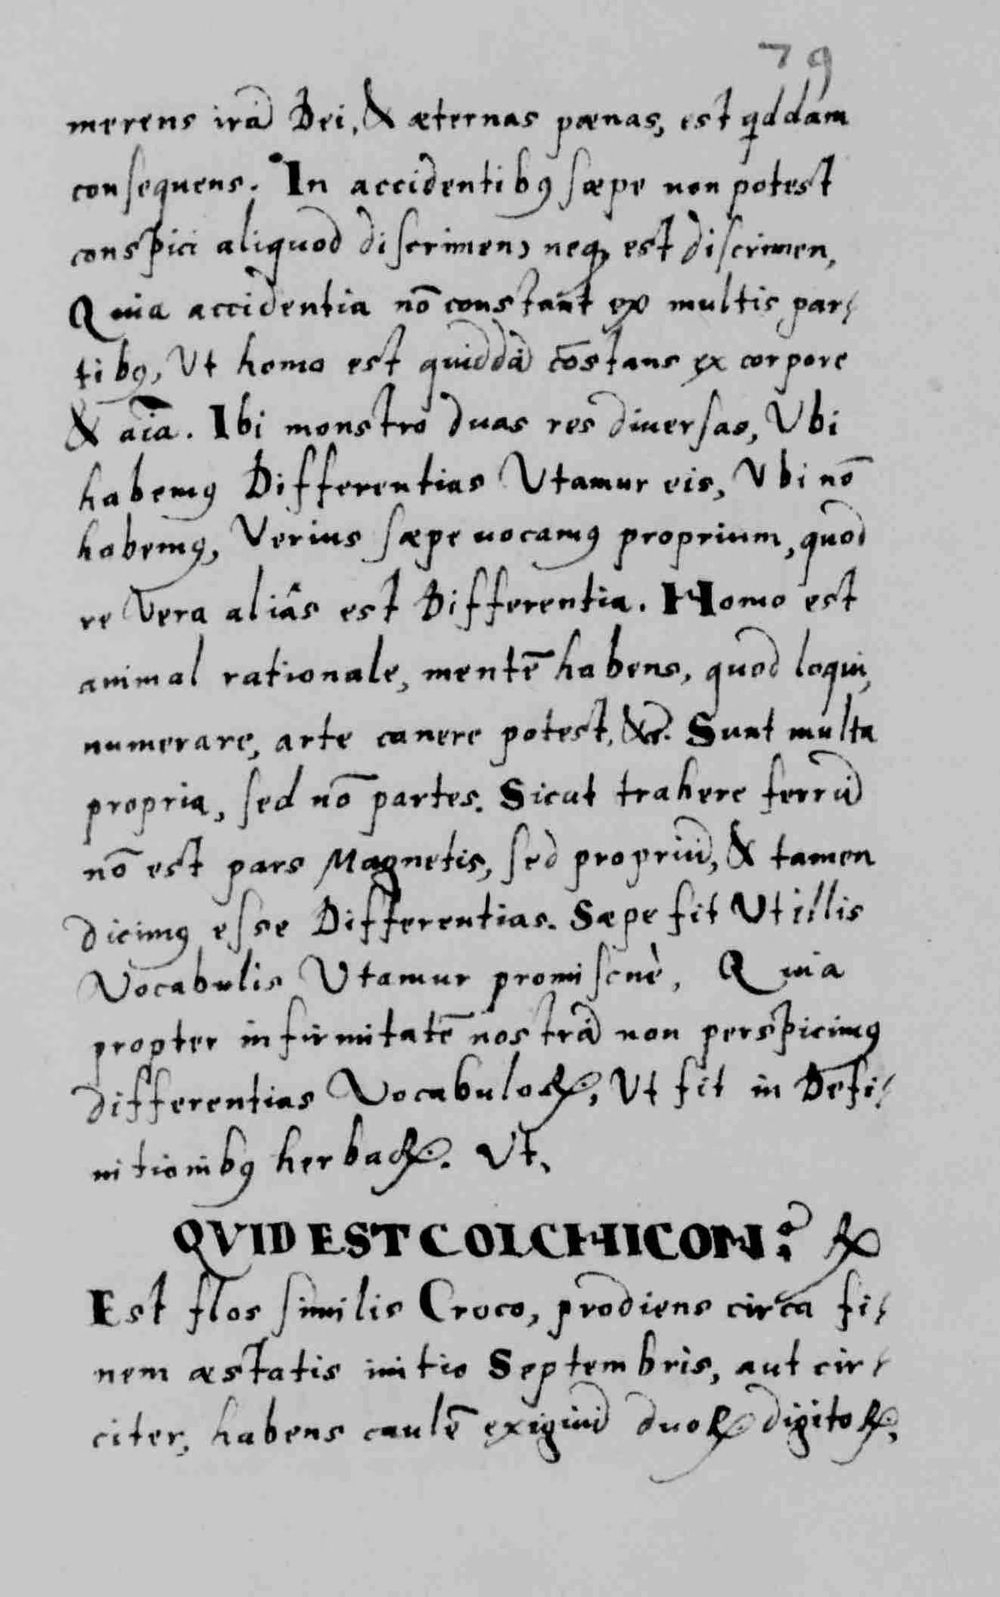 79
merens irã Dei, & æternas pœnas, est qͥddam
consequens. In accidentibꝰ sæpe non potest
conspici aliquod discrimen, neqꝫ est discrimen,
Quia accidentia nō constant ex multis par⸗
tibꝰ, Ut homo est quiddã cōstans ex corpore
& aīa. Ibi monstro duas res diuersas, Ubi
habemꝰ Differentias Utamur eis, Ubi nō
habemꝰ, Verius sæpe uocamꝰ proprium, quod
re Vera aliâs est Differentia. Homo est
animal rationale, mentē habens, quod loqui,
numerare, arte canere potest, &c. Sunt multa
propria, sed nō partes. Sicut trahere ferrũ
nō est pars Magnetis, sed propriũ, & tamen
dicimꝰ esse Differentias. Sæpe fit Ut illis
Vocabulis Utamur promiscuè, Quia
propter infirmitatē nostrã non perspicimꝰ
differentias Vocabuloꝝ, Ut fit in Defi⸗
nitionibꝰ herbaꝝ. Ut,
QVID EST COLCHICON? ℞
Est flos similis Croco, prodiens circa fi⸗
nem æstatis initio Septembris, aut cir⸗
citer, habens caulē exiguũ duoꝝ digitoꝝ,